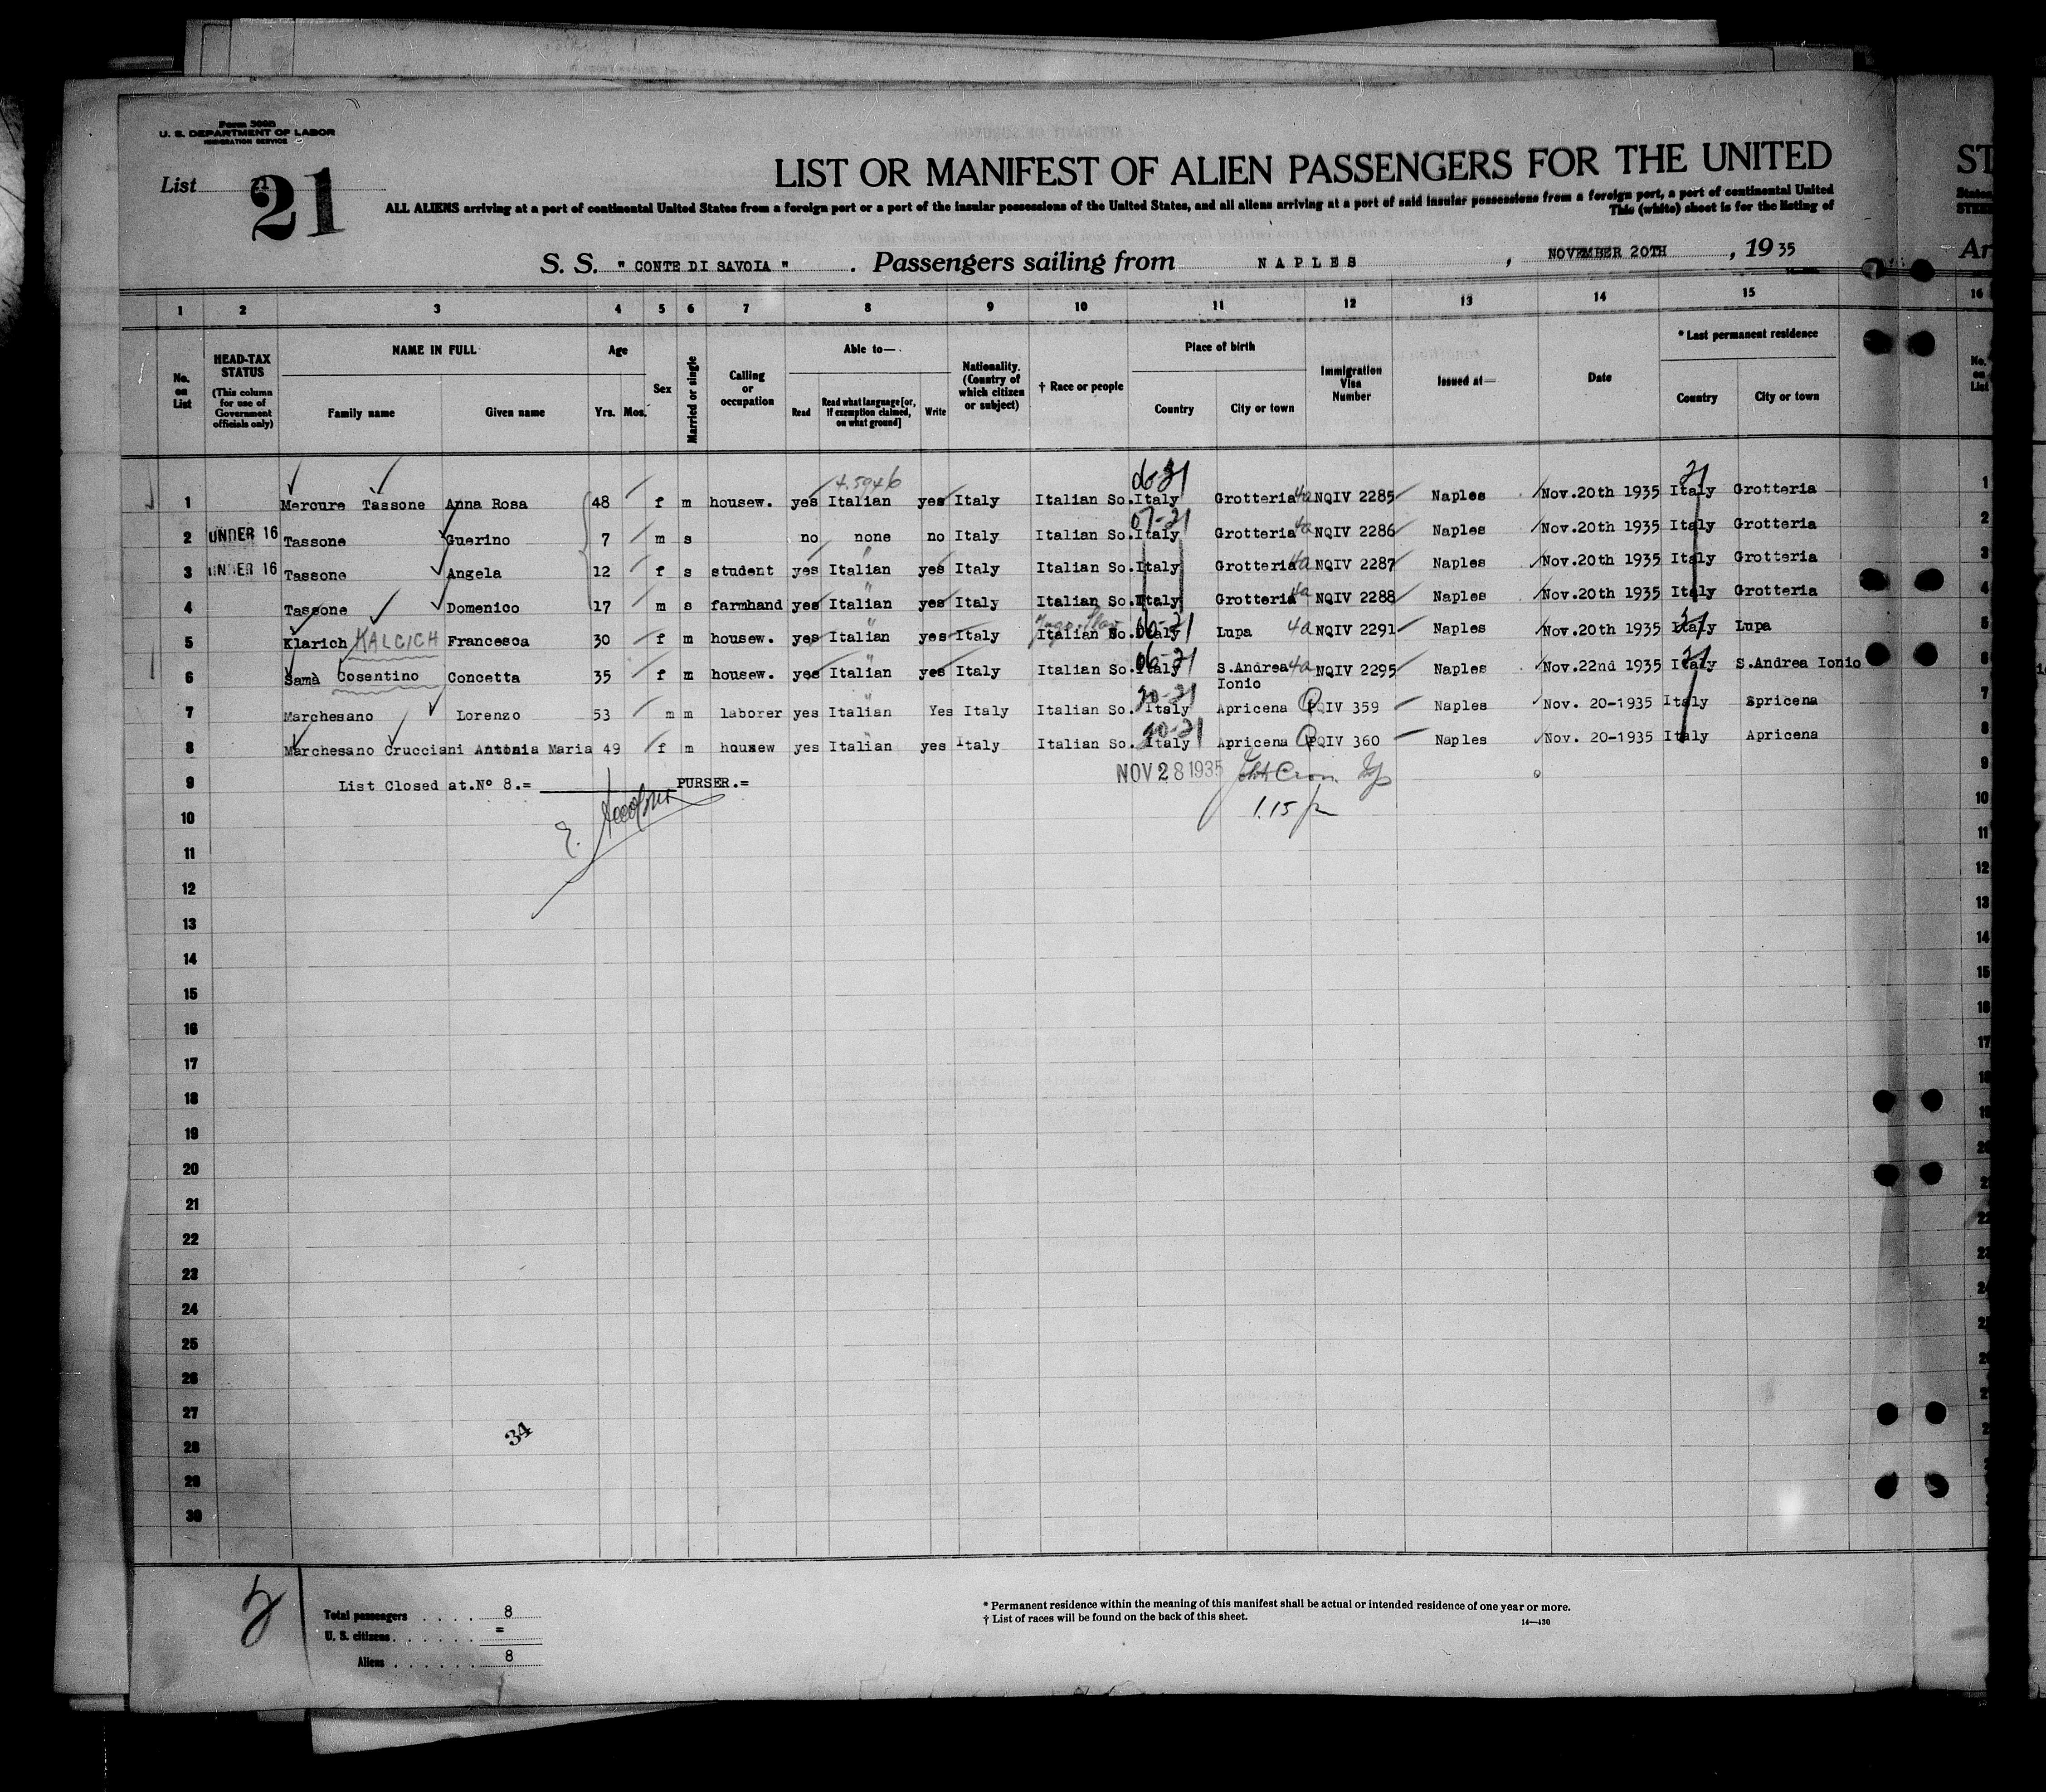 Form 500B
U. S. DEPARTMENT OF LABOR
IMMIGRATION SERVICE
List 21
21
LIST OR MANIFEST OF ALIEN PASSENGERS FOR THE UNITED
ST
ALL ALIENS arriving at a port of continental United States from a foreign port or a port of the insular possessions of the United States, and all aliens arriving at a port of said insular possessions from a foreign port, a port of continental United
This (white) sheet is for the listing of
S. S. " CONTE DI SAVOIA " . Passengers sailing from NAPLES , NOVEMBER 20TH , 19 35
Ar
1 2 3 4 5 6 7 8 9 10 11 12 13 14 15 16
No. on List
HEAD-TAX STATUS (This column for use of Government officials only)
NAME IN FULL
Family name Given name
Age
Yrs. Mos.
Sex
Married or single
Calling or occupation
Able to—
Read Read what language [or, if exemption claimed, on what ground] Write
Nationality. (Country of which citizen or subject)
† Race or people
Place of birth
Country City or town
Immigration Visa Number
Issued at—
Date
* Last permanent residence
Country City or town
No. on List
4.5946 06-21 21
1 Mercure Tassone Anna Rosa 48 f m housew. yes Italian yes Italy Italian So. Italy Grotteria 4a NQIV 2285 Naples Nov.20th 1935 Italy Grotteria 1
07-21
2 UNDER 16 Tassone Guerino 7 m s no none no Italy Italian So. Italy Grotteria 4a NQIV 2286 Naples Nov.20th 1935 Italy Grotteria 2
3 UNDER 16 Tassone Angela 12 f s student yes Italian yes Italy Italian So. Italy Grotteria 4a NQIV 2287 Naples Nov.20th 1935 Italy Grotteria 3
4 Tassone Domenico 17 m s farmhand yes Italian yes Italy Italian So. Italy Grotteria 4a NQIV 2288 Naples Nov.20th 1935 Italy Grotteria 4
5 Klarich KALCICH Francesca 30 f m housew. yes Italian yes Italy Italian So. Italy Lupa 4a NQIV 2291 Naples Nov.20th 1935 Italy Lupa 5
06-21 21
6 Samà Cosentino Concetta 35 f m housew. yes Italian yes Italy Italian So. Italy S.Andrea Ionio 4a NQIV 2295 Naples Nov.22nd 1935 Italy S.Andrea Ionio 6
7 Marchesano Lorenzo 53 m m laborer yes Italian Yes Italy Italian So. Italy Apricena PQIV 359 Naples Nov. 20-1935 Italy Spricena 7
8 Marchesano Crucciani Antonia Maria 49 f m housew yes Italian yes Italy Italian So. Italy Apricena PQIV 360 Naples Nov. 20-1935 Italy Apricena 8
9 List Closed at.Nº 8.= PURSER.= NOV 28 1935 9
1.15
10 10
11 11
12 12
13 13
14 14
15 15
16 16
17 17
18 18
19 19
20 20
21
22
23
24
25
26
27
28
29
30
34
Total passengers 8
U. S. citizens =
Aliens 8
* Permanent residence within the meaning of this manifest shall be actual or intended residence of one year or more.
† List of races will be found on the back of this sheet.
14—430